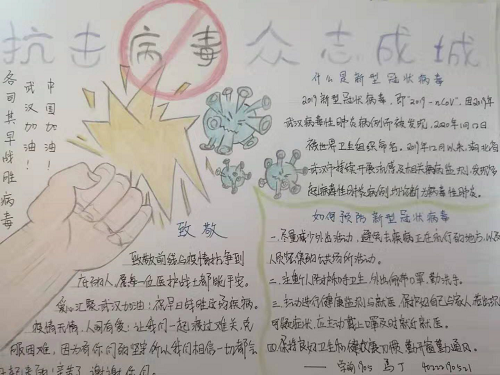 抗击病毒众志成城
中国加油！
武汉加油！
各司其早战胜病毒
什么是新型冠状病毒
2019新型冠状病毒，即"2019-nCoV"，因2019年
武汉病毒性肺炎病例而被发现，2020年1月12日
被世界卫生组织命名。2019年12月以来，湖北省
武汉市持续开展流感及相关疾病监测，发现多
起病毒性肺炎病例，均诊断为病毒性肺炎。
致敬
致敬前线与疫情抗争到
底的人，愿每一位医护战士都能平安。
爱心汇聚武汉加油：
疫情无情，人间有爱：让我们一起渡过难关，克
服困难，因为有你们的坚守所以我们相信一切都会
谢谢你们
如何预防新型冠状病毒
一、尽量减少外出活动，避免去疾病正在流行的地方，以及
人员密集的公共场所活动。
二、注重个人防护和手卫生，外出佩戴口罩，勤洗手。
三、主动进行健康监测与就医，保持好自己与家人
可疑症状，应主动戴上口罩及时就近就医。
四、保持良好卫生和健康习惯，勤开窗勤通风。